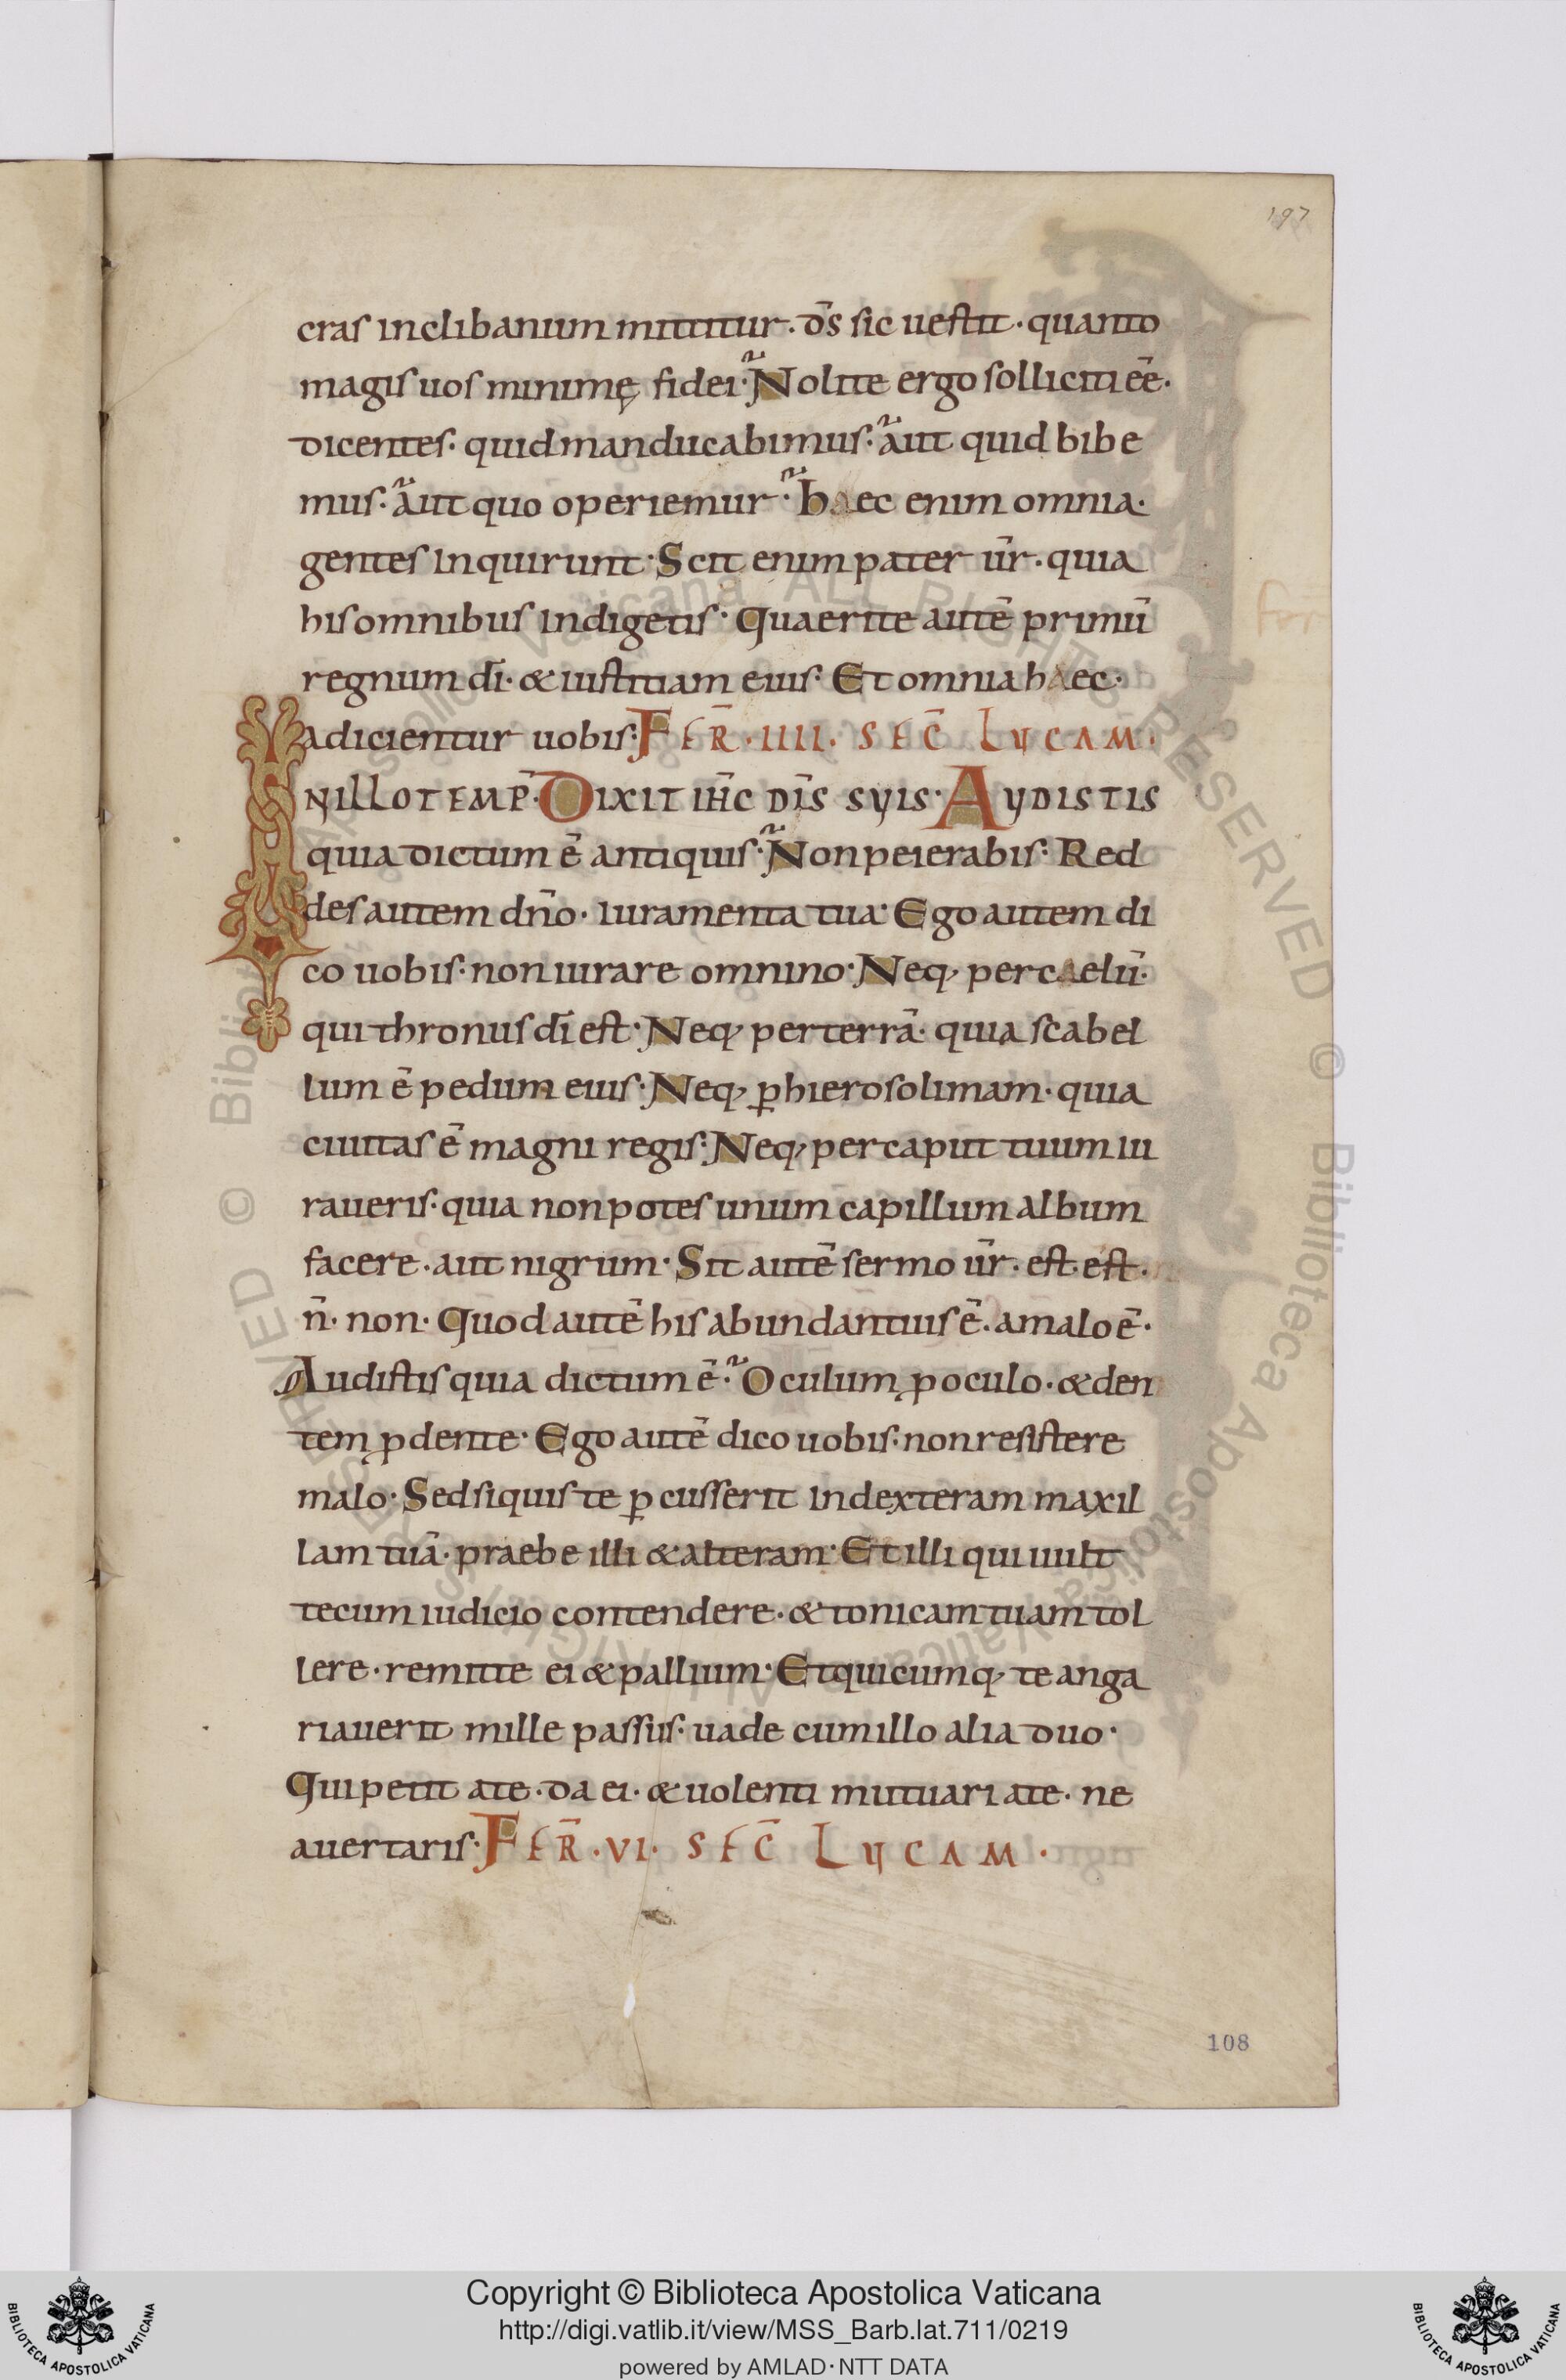 197
cras inclibanum mittitur. d̄s sic uestit. quanto
magis uos minimę fidei. Nolite ergo solliciti ēe.
dicentes. quid manducabimus. aut quid bibe
mus. aut quo operiemur. haec enim omnia.
gentes inquirunt. Scit enim pater ur̄. quia
his omnibus indigetis. Quaerite autē primū
regnum dī. & iustitiam eius. Et omnia haec.
adicientur uobis: FER̄. IIII. SEC̄ LUCAM.
INILLOTEMP̄. DIXIT IH̄C DIS̄ SUIS. AUDISTIS
quia dictum ē antiquis. Nonpeierabis: Red
des autem dn̄o. iuramenta tua. Ego autem di
co uobis: non iurare omnino. Neq, per caelū.
qui thronus dī est. Neq, per terrā. quia scabel
lum ē pedum eius. Neq, ꝑ hierosolimam. quia
ciuitas ē magni regis: Neq, per caput tuum iu
raueris. quia non potes unum capillum album
facere. aut nigrum. Sit autē sermo ur̄. est. est.
n̄. non. Quod autē his abundantius ē. amalo ē.
Audistis quia dictum ē. Oculum p oculo. & den
tem p dente. Ego autē dico uobis. non resistere
malo. Sed siquis te ꝑcusserit indexteram maxil
lam tuā. praebe illi & alteram. Et illi qui uult
tecum iudicio contendere. & tonicam tuam tol
lere. remitte ei & pallium. Et quicumq, te anga
riauerit mille passus. uade cum illo alia duo.
Qui petit ate. da ei. & uolenti mutuari ate. ne
auertaris. FER̄. VI. SEC̄ LUCAM.
108
Copyright © Biblioteca Apostolica Vaticana
http://digi.vatlib.it/view/MSS_Barb.lat.711/0219
powered by AMLAD·NTT DATA
BIBLIOTECA APOSTOLICA VATICANA
BIBLIOTECA APOSTOLICA VATICANA